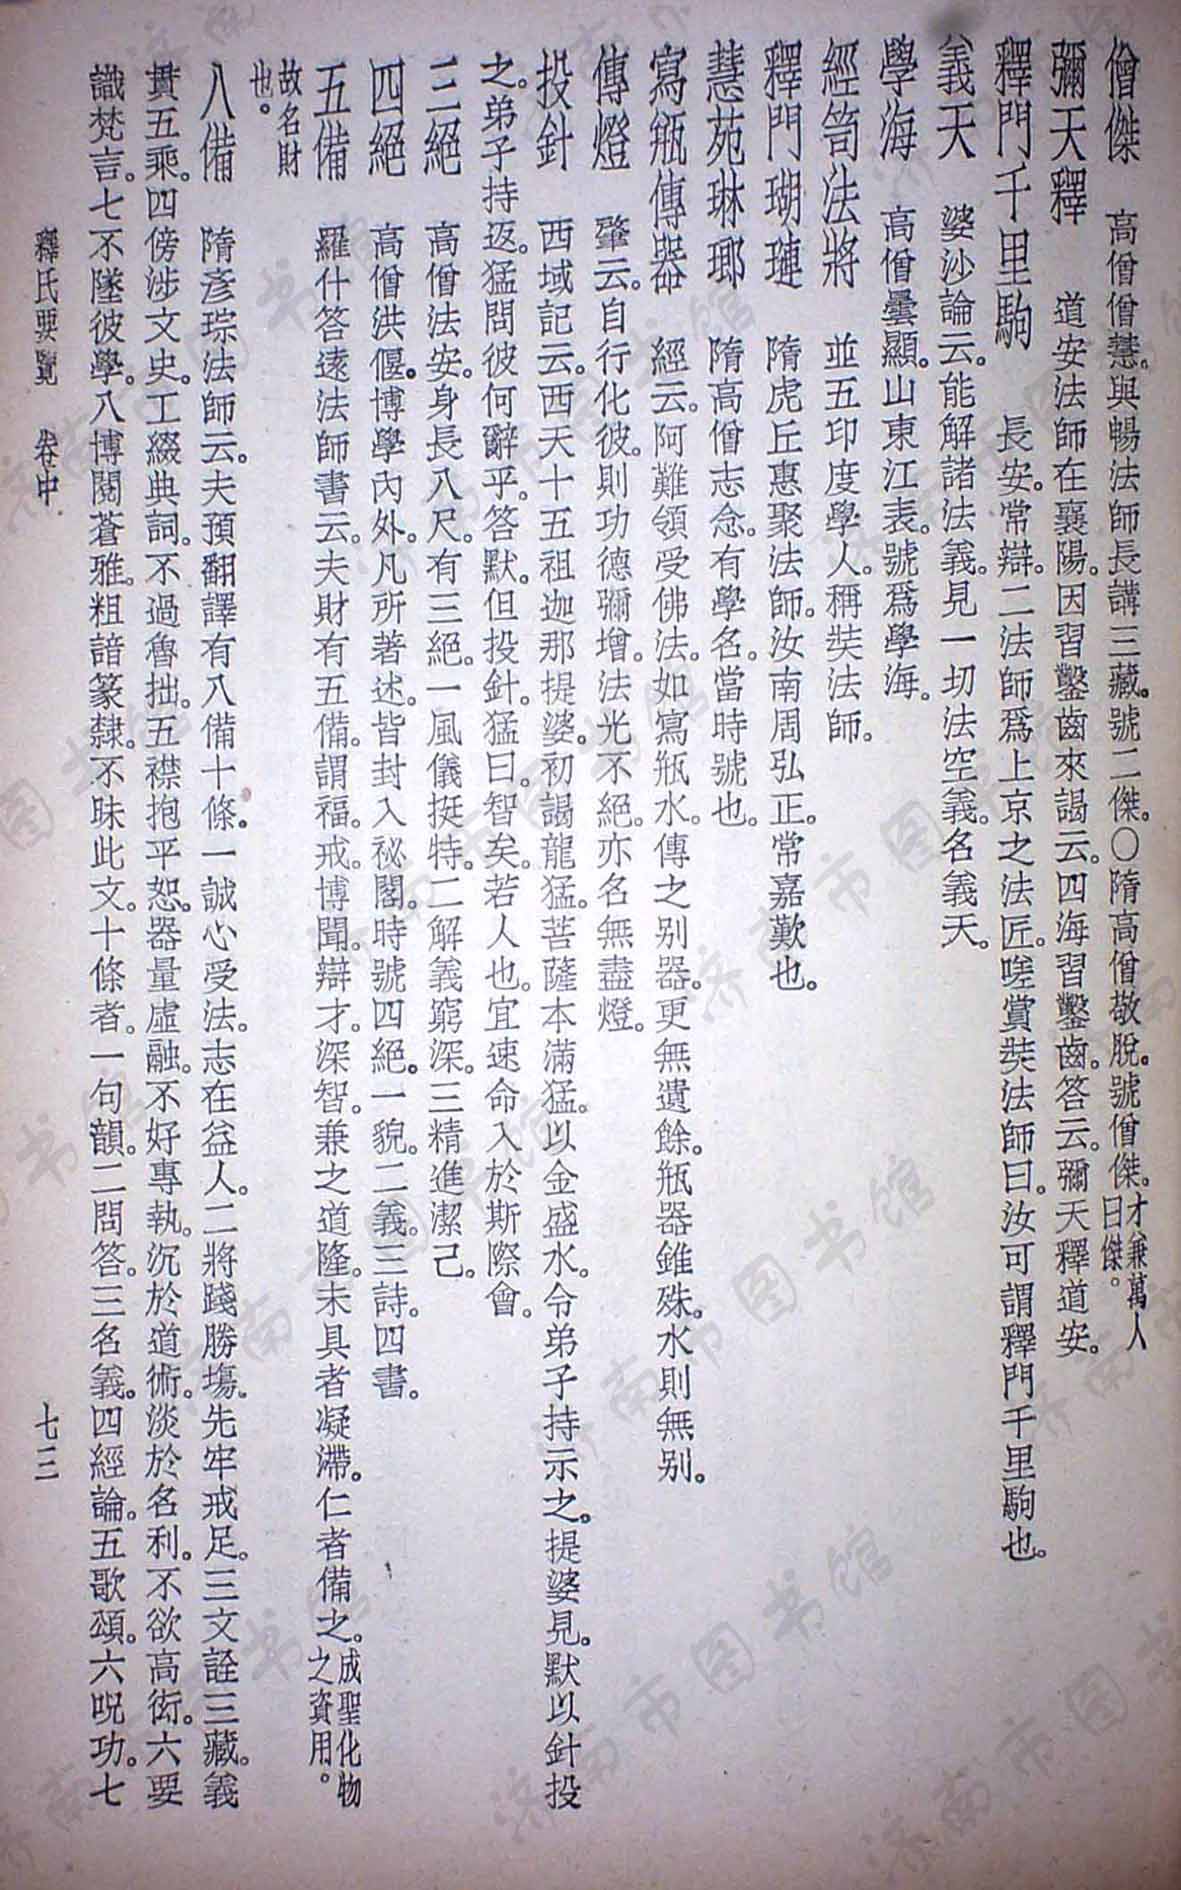 僧傑　高僧僧慧。與暢法師長講三藏。號二傑。〇隋高僧敬脫。號僧傑。才兼萬人曰傑。
彌天釋　道安法師在襄陽。因習鑿齒來謁云。四海習鑿齒。答云。彌天釋道安。
釋門千里駒　長安。常辯。二法師爲上京之法匠。嗟賞奘法師曰。汝可謂釋門千里駒也。
義天　婆沙論云。能解諸法義。見一切法空義。名義天。
學海　高僧曇顯。山東江表。號爲學海。
經笥法將　並五印度學人。稱奘法師。
釋門瑚璉　隋虎丘惠聚法師。汝南周弘正。常嘉歎也。
慧苑琳瑯　隋高僧志念。有學名。當時號也。
寫瓶傳器　經云。阿難領受佛法。如寫瓶水。傳之别器。更無遺餘。瓶器錐殊。水則無别。
傳燈　肇云。自行化彼。則功德彌增。法光不絕。亦名無盡燈。
投針　西域記云。西天十五祖迦那提婆。初謁龍猛。菩薩本滿猛。以金盛水。令弟子持示之。提婆見。默以針投
之。弟子持返。猛問彼何辭乎。答默。但投針。猛曰。智矣。若人也。宜速命入於斯際會。
三絕　高僧法安。身長八尺。有三絕。一風儀挺特。二解義窮深。三精進潔己。
四絕　高僧洪偃。博學內外。凡所著述。皆封入祕閣。時號四絕。一貌。二義。三詩。四書。
五備　羅什答遠法師書云。夫財有五備。謂福。戒。博聞。辯才。深智。兼之道隆。未具者凝滯。仁者備之。成聖化物之資用。
故名財也。
八備　隋彥琮法師云。夫預翻譯有八備十條。一誠心受法。志在益人。二將踐勝塲。先牢戒足。三文詮三藏。義
貫五乘。四傍涉文史。工綴典詞。不過魯拙。五襟抱平恕。器量虛融。不好專執。沉於道術。淡於名利。不欲高衒。六要
識梵言。七不墜彼學。八博閱蒼雅。粗諳篆隸。不昧此文。十條者。一句韻。二問答。三名義。四經論。五歌頌。六呪功。七
釋氏要覽　卷中　七三